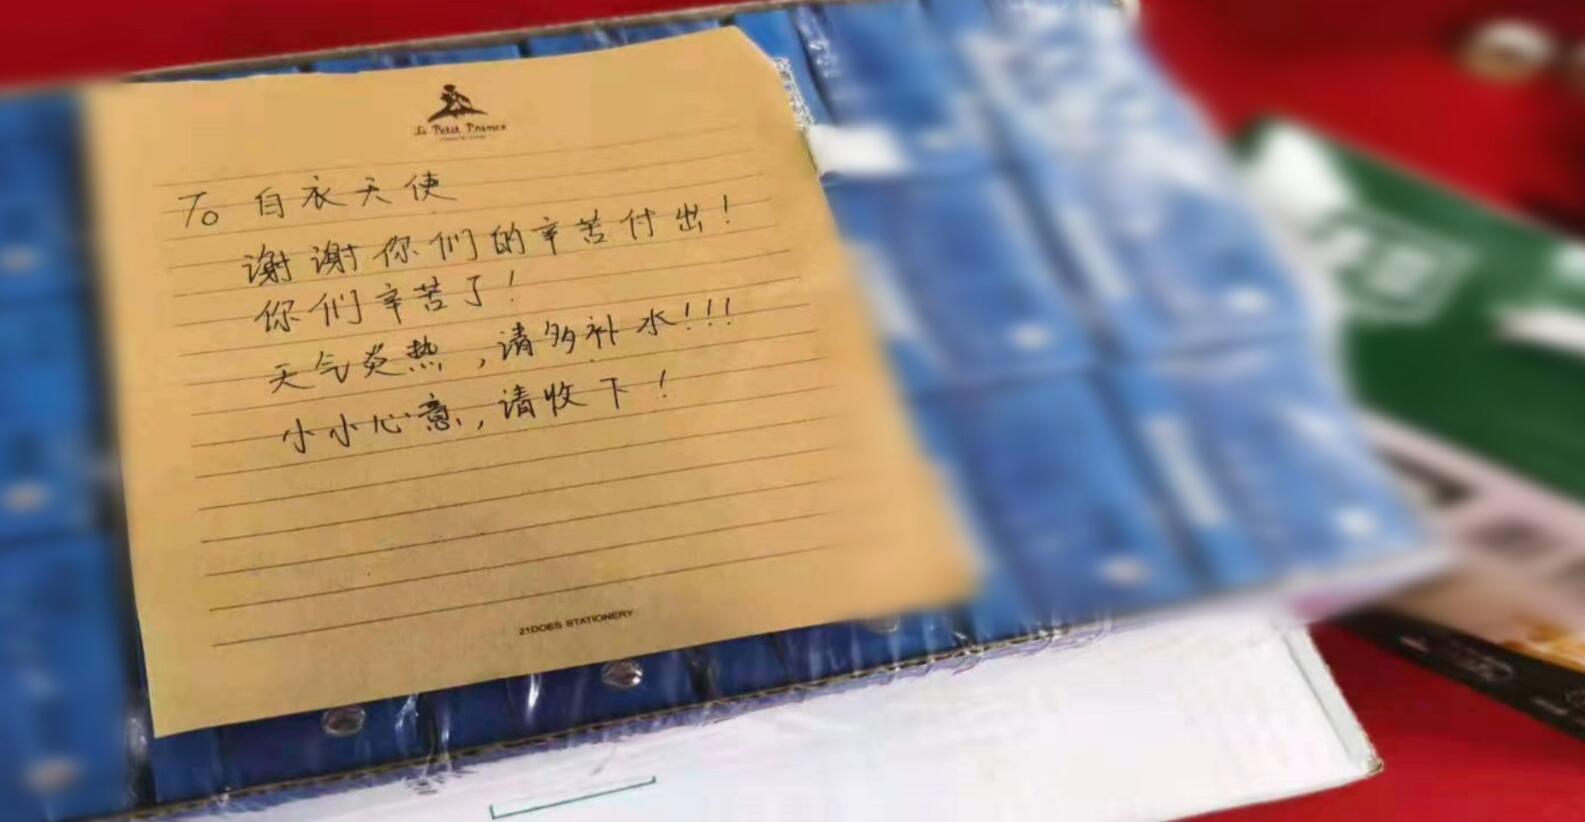 Le Petit Prince
To 白衣天使
谢谢你们的辛苦付出！
你们辛苦了！
天气炎热，请多补水!!!
小小心意，请收下！
21DOES STATIONERY